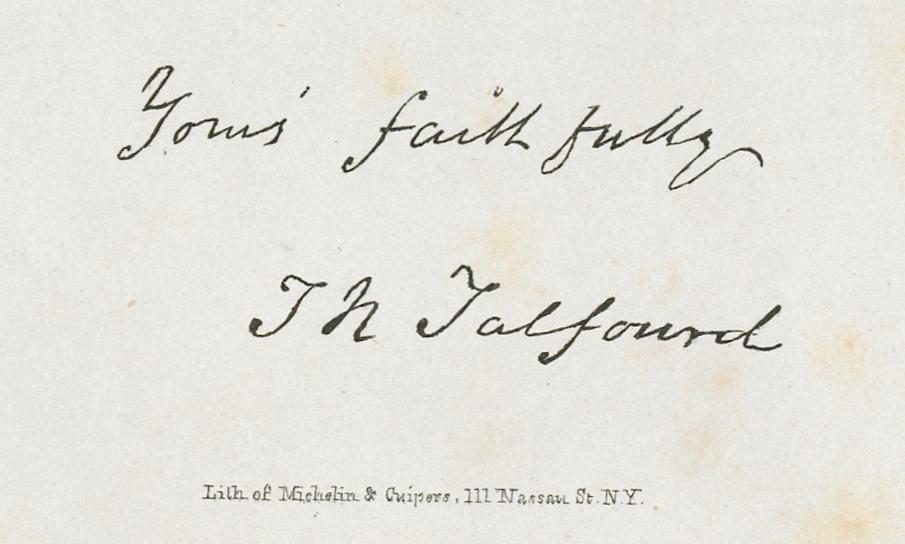 Yours' faithfully
T N Talfourd
Lith. of Michelin & Cuipers, 111 Nassau St. N.Y.